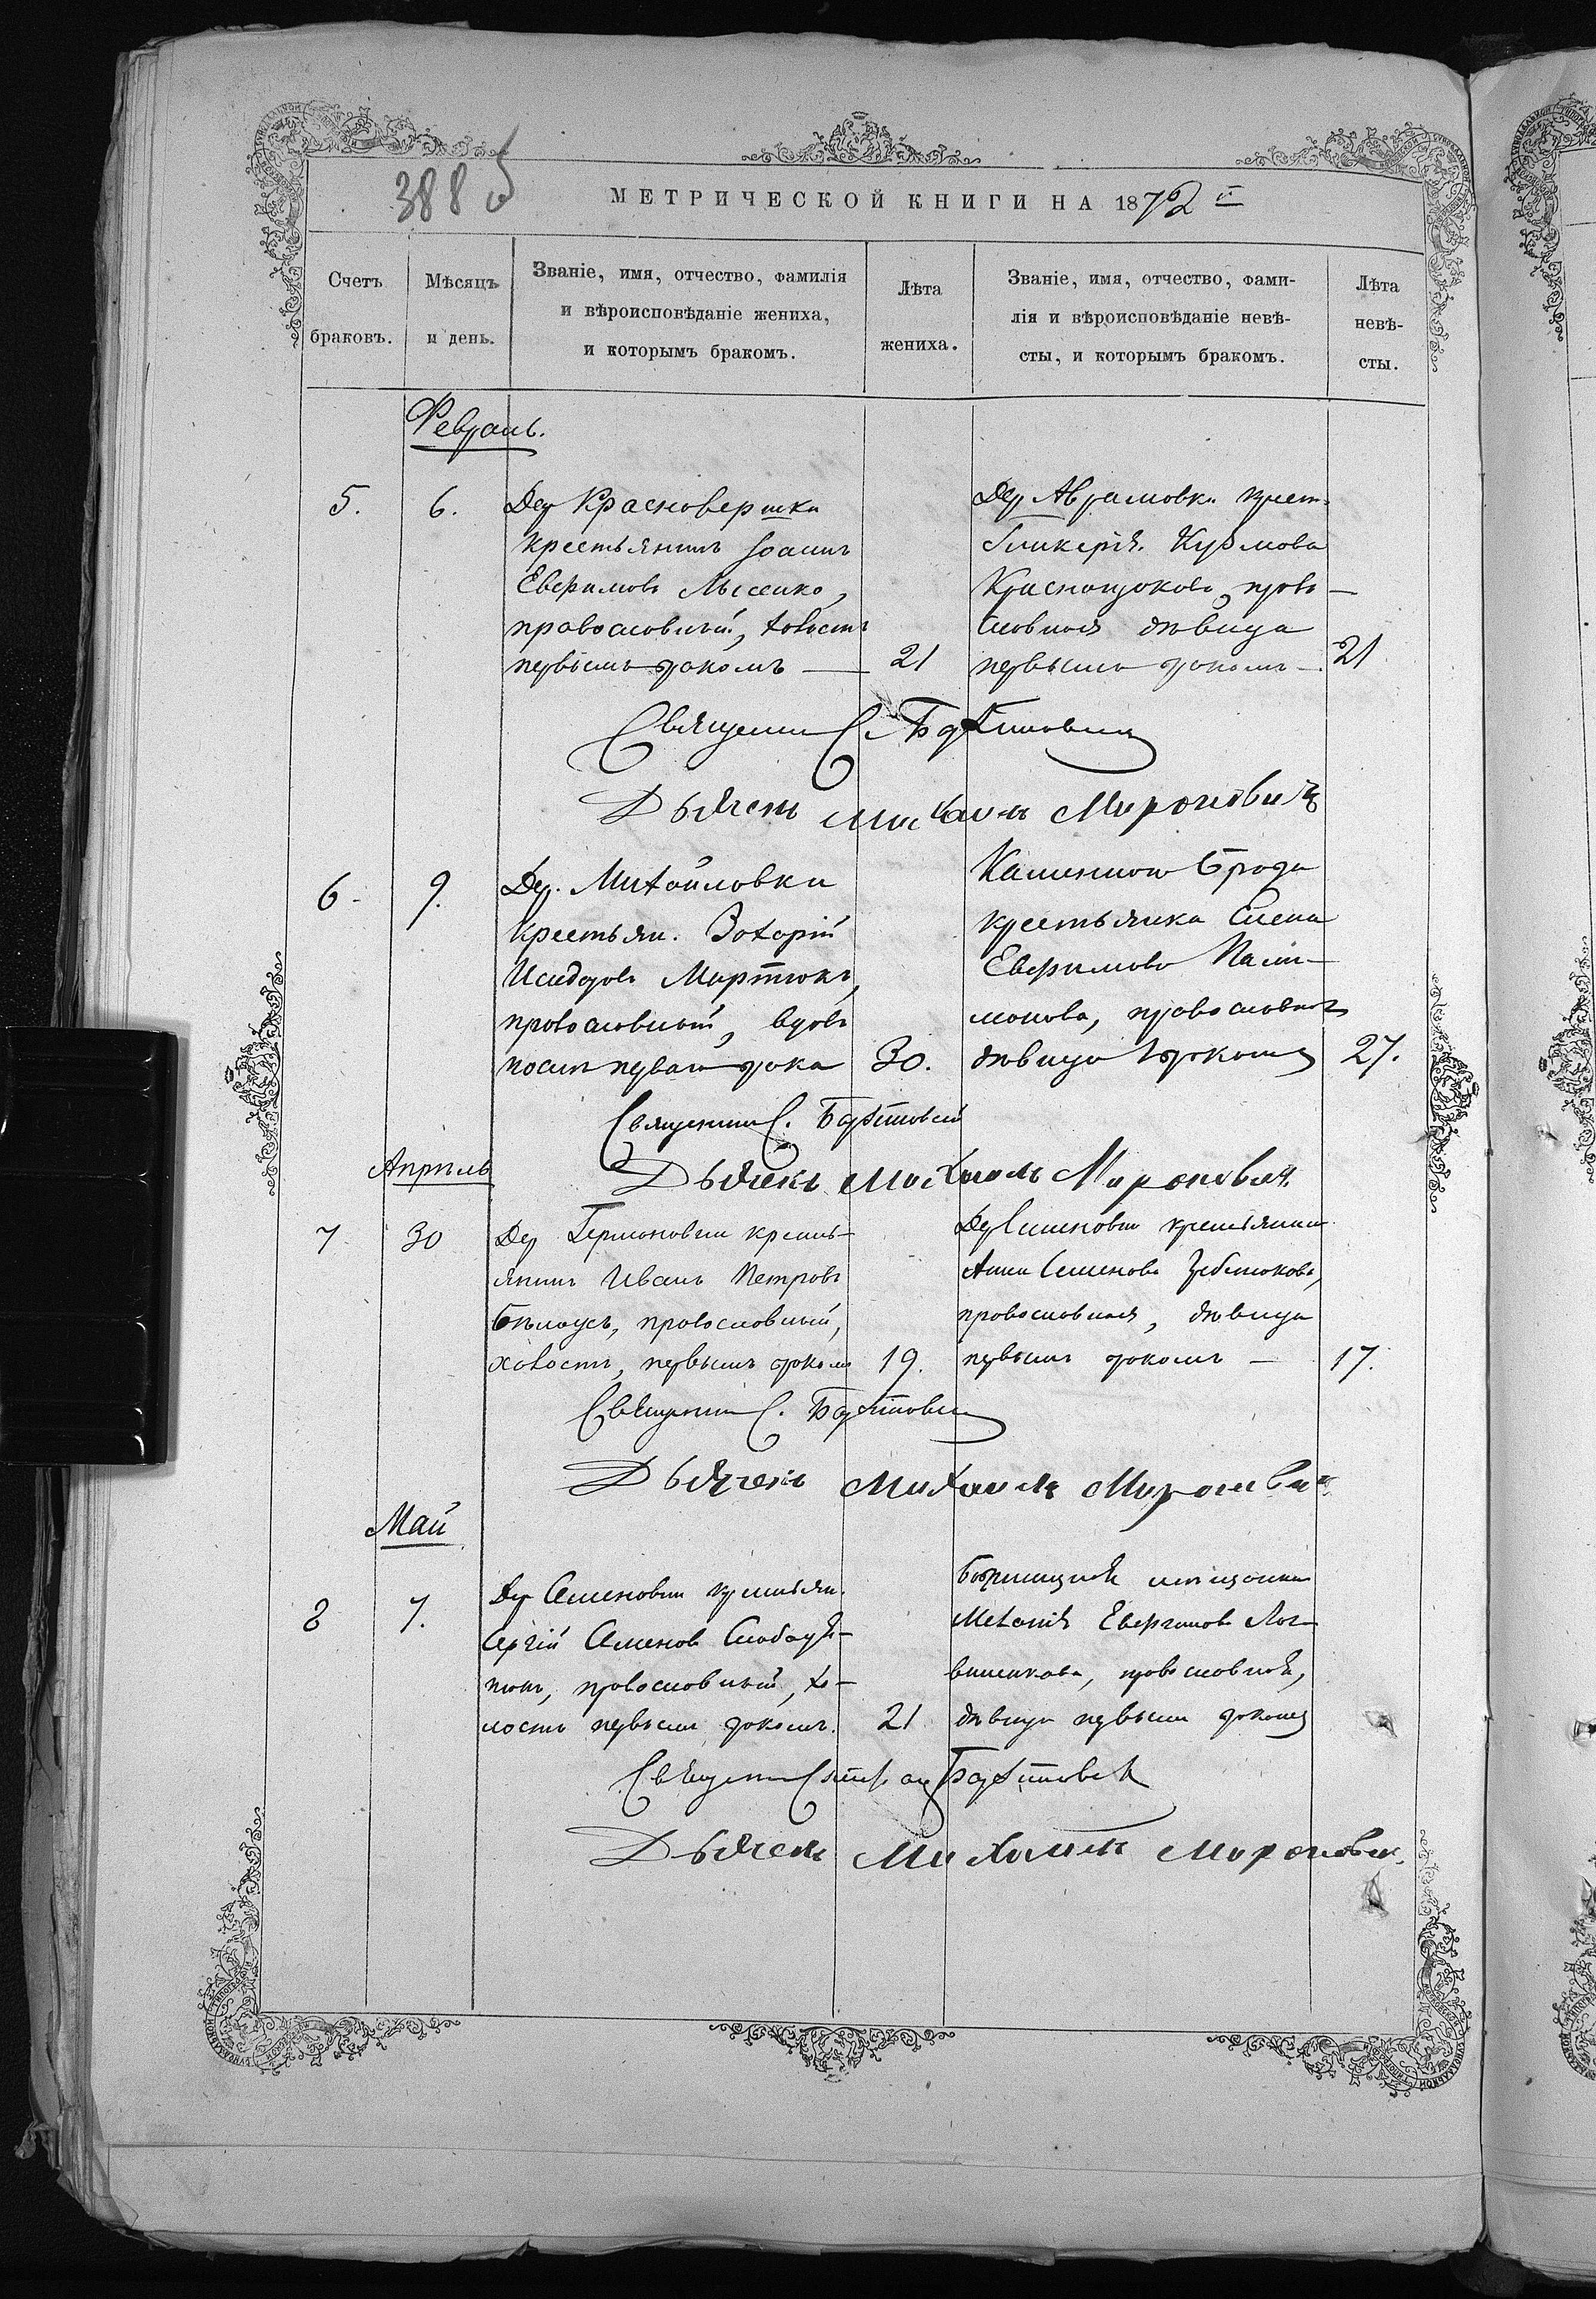 388
МЕТРИЧЕСКОЙ КНИГИ НА 1872 й
Счетъ браковъ.
Мѣсяцъ и день.
Званіе, имя, отчество, фамилія
и вѣроисповѣданіе жениха,
и которымъ бракомъ.
Лѣта жениха.
Званіе, имя, отчество, фами-
лія и вѣроисповѣданіе невѣ-
сты, и которымъ бракомъ.
Лѣта невѣ-
сты.
Февраль.
5.
6.
Дер Красновершки
крестьянинъ Іоаннъ
Евфимовъ Лысенко,
православный, холостъ
первымъ бракомъ —
21
Дер Аврамовки крест.
Гликерія Кузмова
Краснощокова, право—
славная дѣвица
первымъ бракомъ —
21
Священник С.
Дьячекъ Михаилъ Мироновичъ
6 -
9.
Дер. Михайловки
крестьян. Захарій
Исидоровъ Мартюкъ,
православный, вдовъ
послѣ перваго брака
30.
Каменного Брода
крестьянка Елена
Евфимова Пали—
монова, православная
дѣвица 1 бракомъ
27.
Священник С.
Дьячекъ Михаилъ Мироновичъ
Апрѣль
7
30
Дер Гермоновки кресть—
янинъ Иванъ Петровъ
Бѣлоусъ, православный,
холостъ, первымъ бракомъ
19.
Дер Семеновки крестьянка
Анна Семенова
православная, дѣвица
первымъ бракомъ —
17.
Священник С.
Дьячекъ Михаилъ Мироновичъ
Май
8
7.
Дер Семеновки крестьян.
Сергій Семенов Слабодя—
нюкъ, православный, хо—
лостъ первым бракомъ.
21
мѣщанка
Меланія Лог—
виненкова, православная,
дѣвица первым бракомъ
Священник
Дьячекъ Михаилъ Мироновичъ